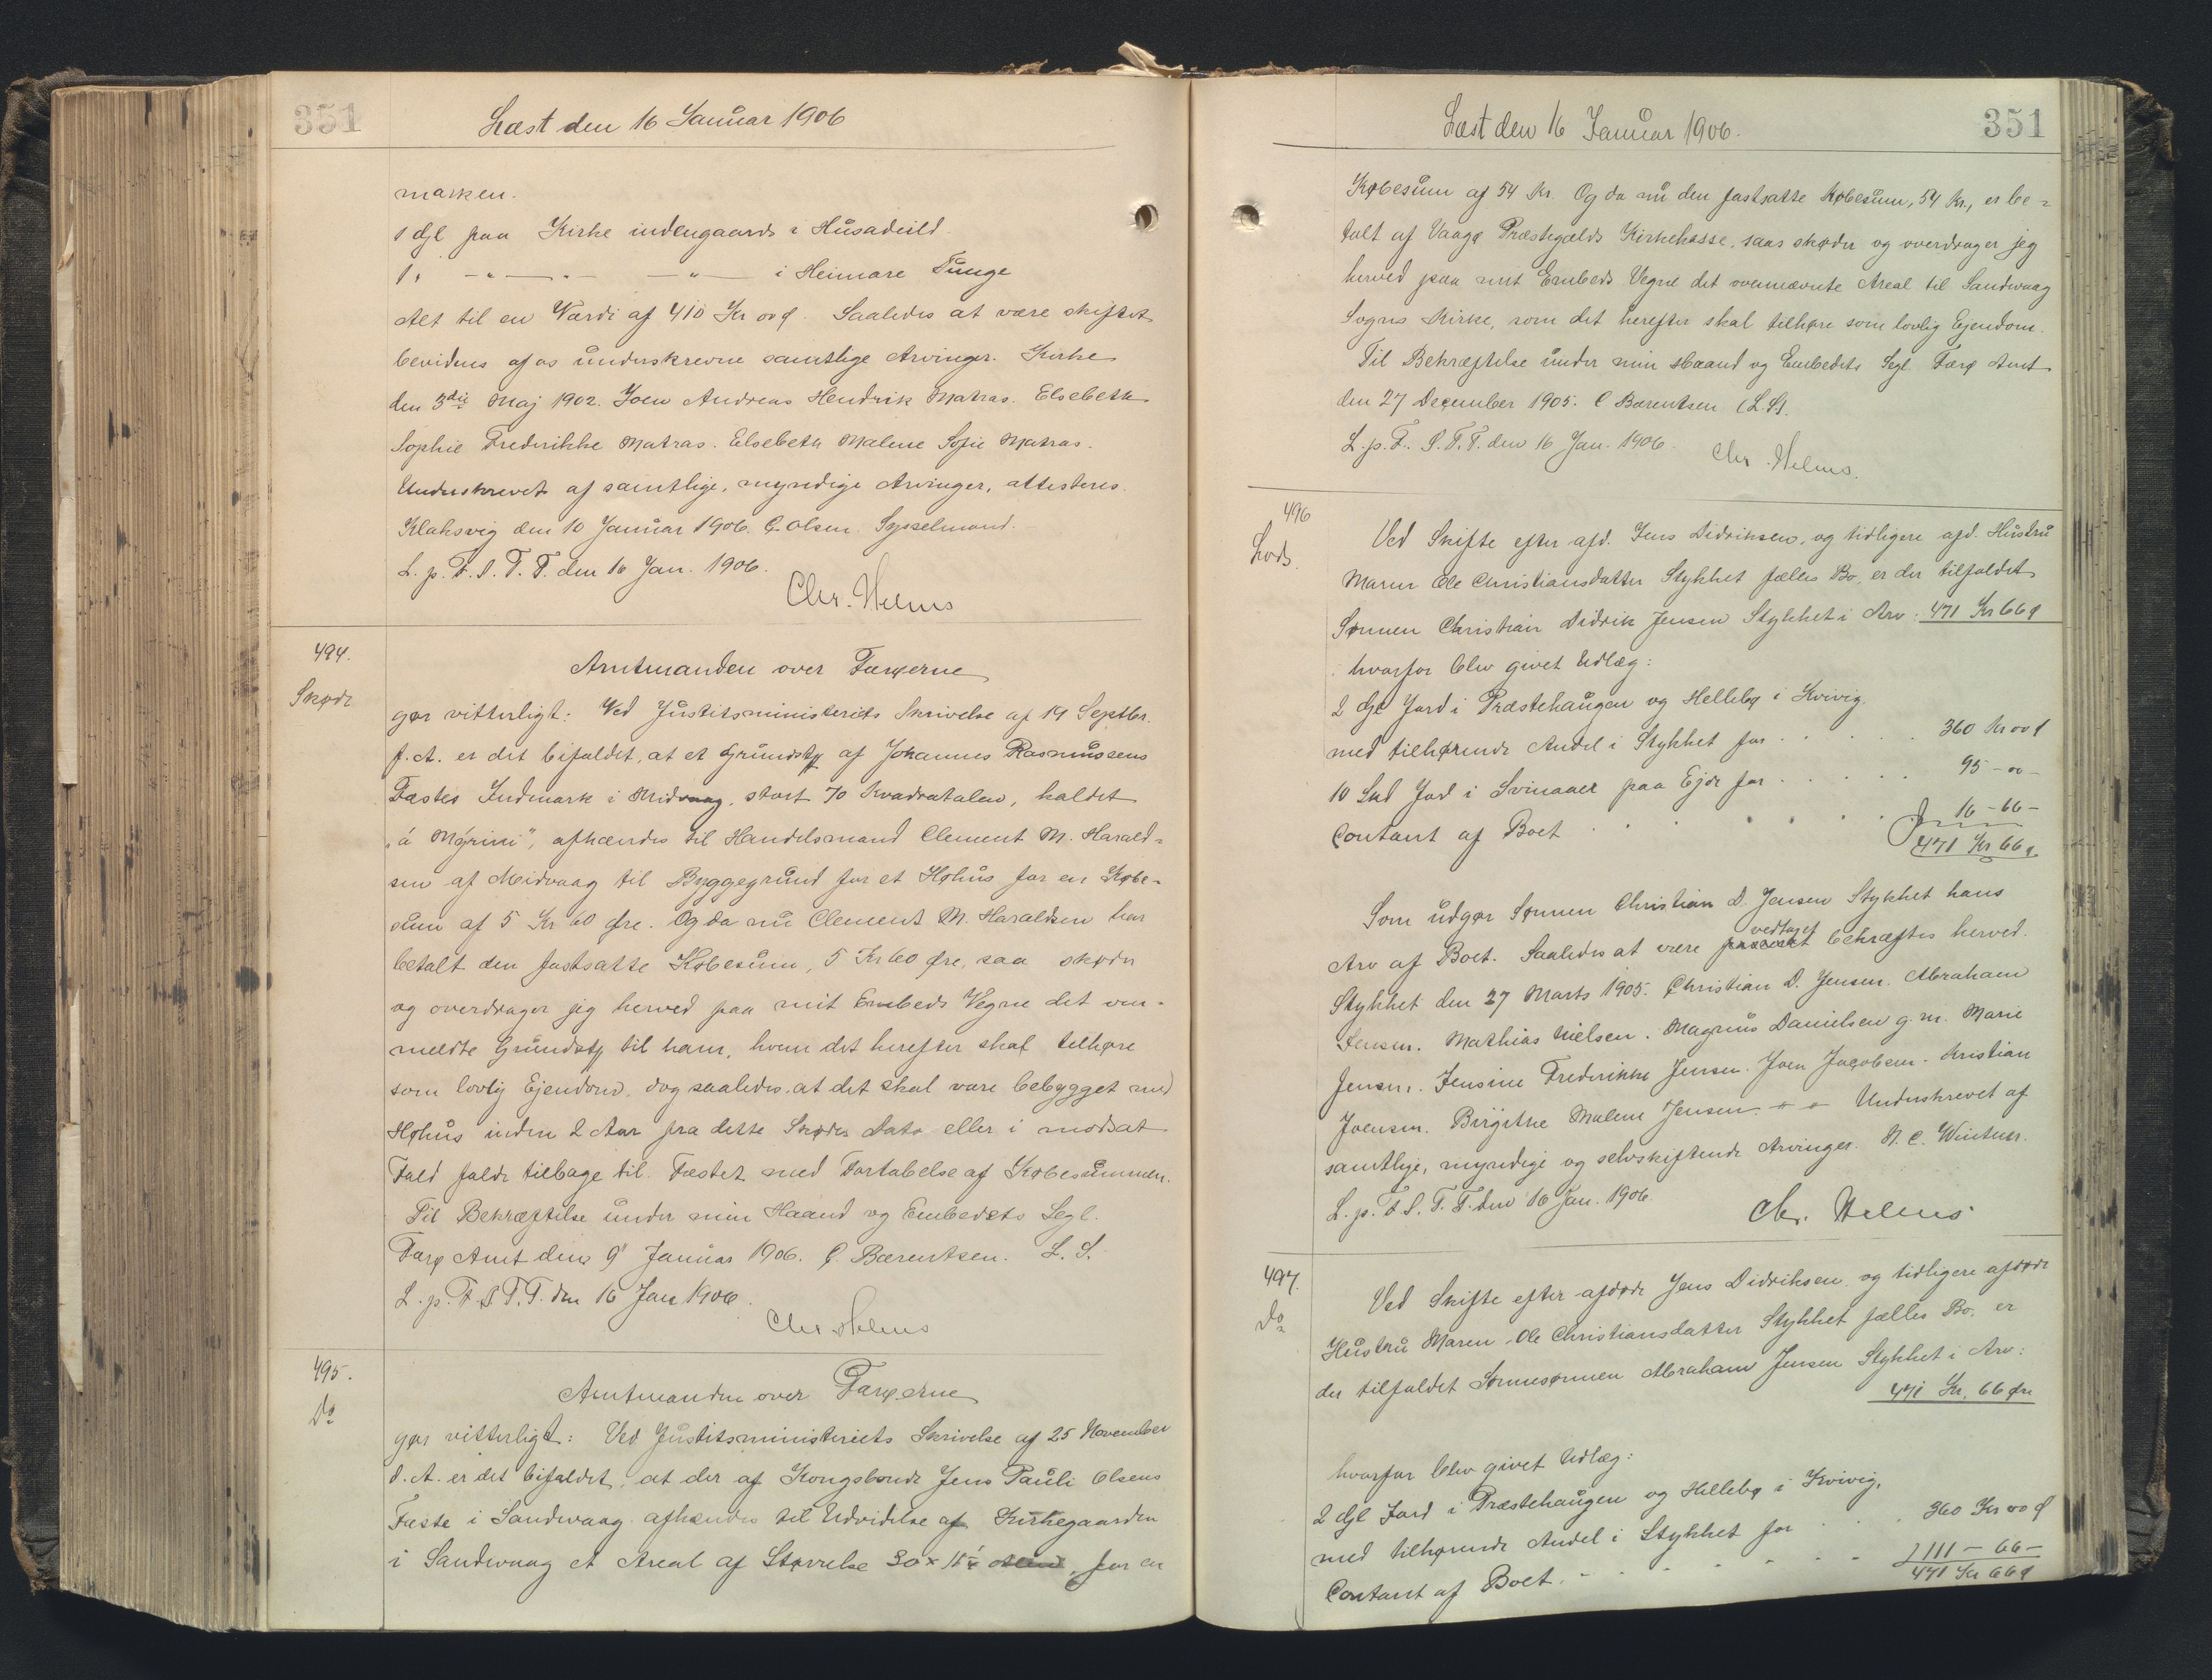 351
Læst den 16 Januar 1906
marken.
1 djl paa Kirke indengaards i Húsadeild.
1 " - " - " - - " - i Heimare Tunge
Alt til en Værdi af 410 Kr 00 ø. Saaledes at være skiftet
bevidnes af os underskrevne samtlige Arvinger. Kirke
den 3die Maj 1902. Joen Andreas Hendrik Matras. Elsebeth
Sophie Frederikke Matras. Elsebeth Malene Sofie Matras.
Underskrevet af samtlige, myndige Arvinger, attesteres.
Klaksvig den 10 Januar 1906. Olsen. Sysselmand.
L. p. F. S. T. T. den 16 Jan. 1906.
Chr. Helms
494.
Skøde
Amtmanden over Færøerne
gør vitterligt: Ved Justitsministeriets Skrivelse af 19 Septbr.
f. A. er det bifaldet, at et Grundstk af Johannes Rasmussens
Fæstes Indmark i Midvaag, stort 70 Kvadratalen, kaldet
"á Mýrini", afhændes til Handelsmand Clement M. Harald-
sen af Midvaag til Byggegrund for et Høhus for en Købe-
sum af 5 Kr 60 Øre. Og da nu Clement M. Haraldsen har
betalt den fastsatte Købesum, 5 Kr 60 Øre, saa skøder
og overdrager jeg herved paa mit Embeds Vegne det om-
meldte Grundstk til ham, hvem det herefter skal tilhøre
som lovlig Ejendom, dog saaledes, at det skal være bebygget med
Høhus inden 2 Aar fra dette Skødes Dato eller i modsat
Fald falde tilbage til Fæstet med Fortabelse af Købesummen.
Til Bekræftelse under min Haand og Embedets Segl.
Færø Amt den 9' Januar 1906. C. Bærentsen. L. S.
L. p. F. S. T. T. den 16 Jan 1906.
Chr. Helms
495.
Do
Amtmanden over Færøerne
gør vitterligt: Ved Justitsministeriets Skrivelse af 25 November
d. A. er det bifaldet, at der af Kongsbonde Jens Pauli Olsens
Fæste i Sandvaag afhændes til Udvidelse af Kirkegaarden
i Sandvaag et Areal af Størrelse 30 x for en
Læst den 16 Januar 1906.
351
Købesum af 54 Kr. Og da nu den fastsatte Købesum, 54 Kr., er be-
talt af Vaagø Præstegælds Kirkekasse, saas skøder og overdrager jeg
herved paa mit Embeds Vegne det ovennævnte Areal til Sandvaag
Sogns Kirke, som det herefter skal tilhøre som lovlig Ejendom.
Til Bekræftelse under min Haand og Embedets Segl. Færø Amt
den 27 December 1905. C. Bærentsen (L.S).
L. p. F. S. T. T. den 16 Jan. 1906.
Chr. Helms.
496
Lods.
Ved Skifte efter afd. Jens Didriksen, og tidligere afd. Hustru
Maren Ole Christiansdatter Stykket fælles Bo, er der tilfaldet
Sønnen Christian Didrik Jensen Stykket i Arv: 471 Kr 66 ø
hvorfor blev givet Udlæg:
2 djl Jord i Præstehaugen og Hellebø i Kvivig,
med tilhørende Andel i Stykket for . . . . . 360 Kr 00 ø
10 Skd Jord i Svinaaer paa Ejde for . . . . . 95 - 00 -
Contant af Boet . . . . . . 16 - 66 -
471 Kr 66 ø
Som udgør Sønnen Christian D. Jensen Stykket hans
Arv af Boet. Saaledes at være passeret vedtaget bekræftes herved.
Stykket den 27 Marts 1905. Christian D. Jensen. Abraham
Jensen. Mathias Nielsen. Magnus Danielsen g. m. Marie
Jensen. Jensine Frederikke Jensen. Joen Jacobsen. Kristian
Joensen. Birgithe Malene Jensen. Underskrevet af
samtlige, myndige og selvskiftende Arvinger. N. C. Winther.
L. p. F. S. T. T. den 16 Jan. 1906.
Chr. Helms
497.
Do
Ved Skifte efter afdøde Jens Didriksen og tidligere afdøde
Hustru Maren Ole Christiansdatter Stykket fælles Bo, er
der tilfaldet Sønnesønnen Abraham Jensen Stykket i Arv:
471 Kr. 66 Øre
hvorfor blev givet Udlæg:
2 djl Jord i Præstehaugen og Hellebø i Kvivig,
med tilhørende Andel i Stykket for . . . 360 Kr 00 ø
Contant af Boet . - - - - - 111 - 66 -
471 Kr 66 ø